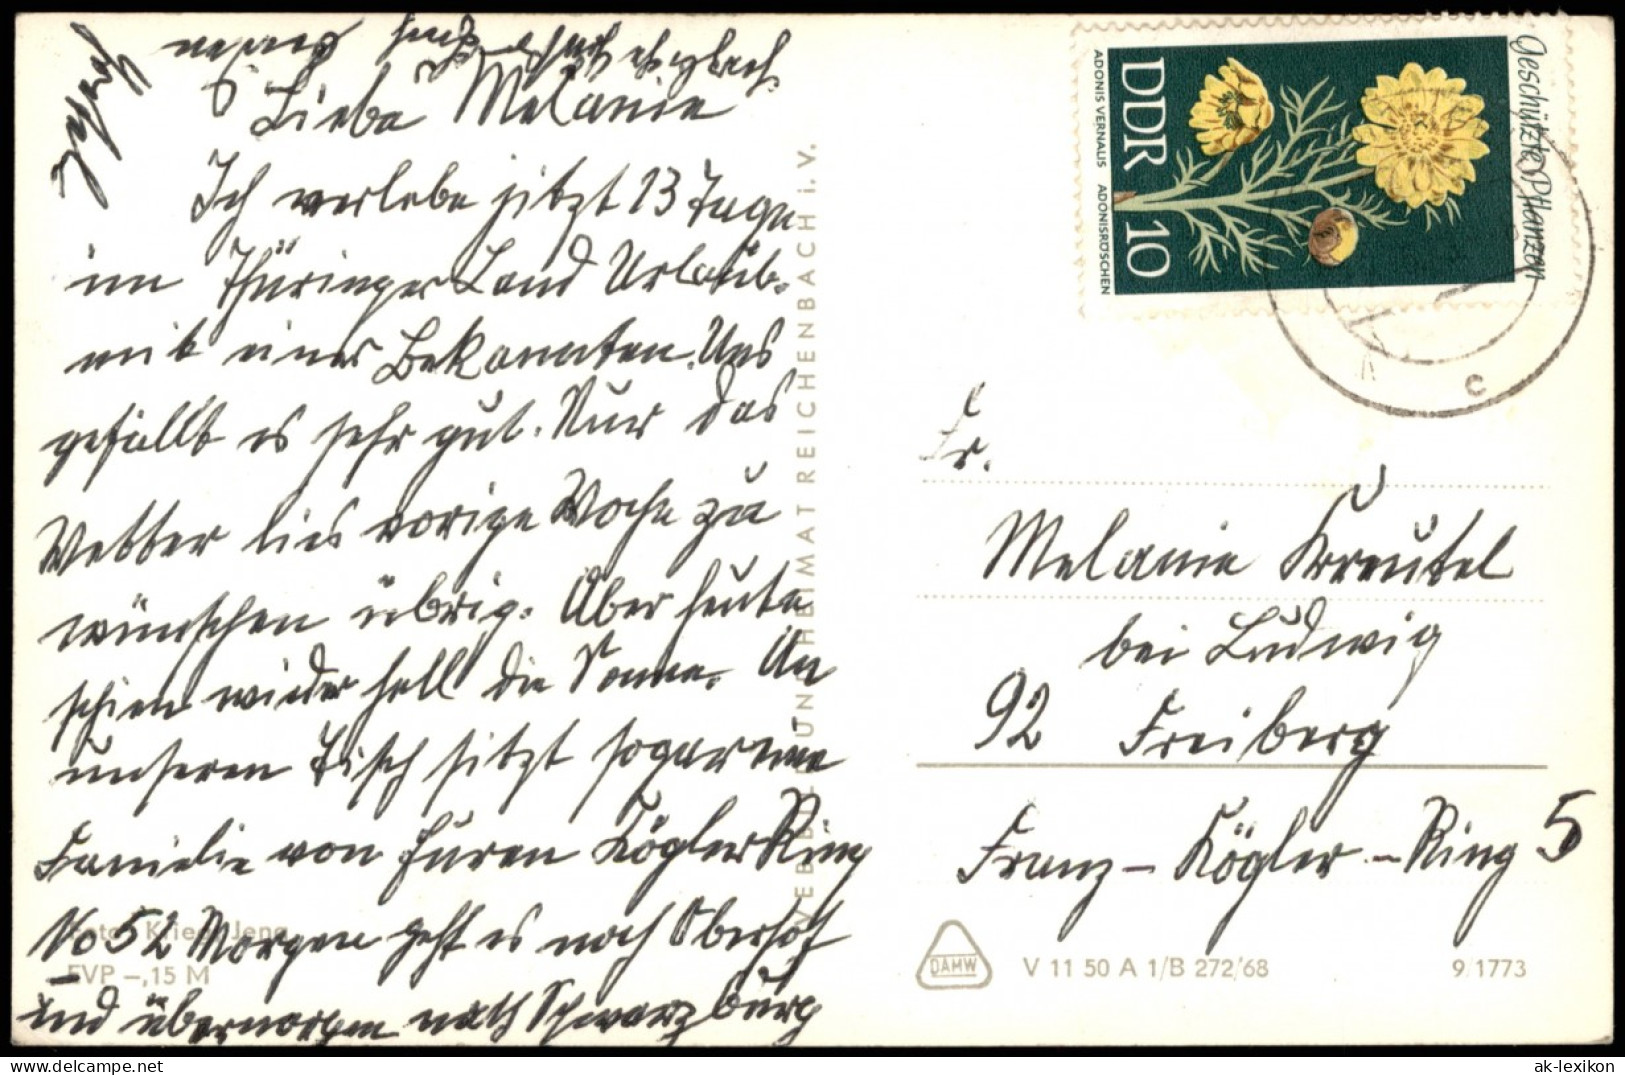 Liebe Melanie
Ich verlebe jetzt 13 Tage
im Thüringer Land Urlaub.
mit einer Bekannten. Uns
gefällt es sehr gut. Nur das
Wetter lies vorige Woche zu
wünschen übrig. Aber heute
schien wieder hell die Sonne. An
unseren Tisch sitzt sogar eine
Familie von Euren Kögler Ring
No 52 Morgen geht es nach Oberhof
und übermorgen nach Schwarzburg
Foto: Krieg, Jena
EVP -,15 M
VEB BILD UND HEIMAT REICHENBACH i. V.
Geschützte Pflanzen
DDR 10
ADONIS VERNALIS ADONISRÖSCHEN
c
Fr.
Melanie Kreutel
bei Ludwig
92 Freiberg
Franz-Kögler-Ring 5
DAMW
V 11 50 A 1/B 272/68
9/1773
ak-lexikon